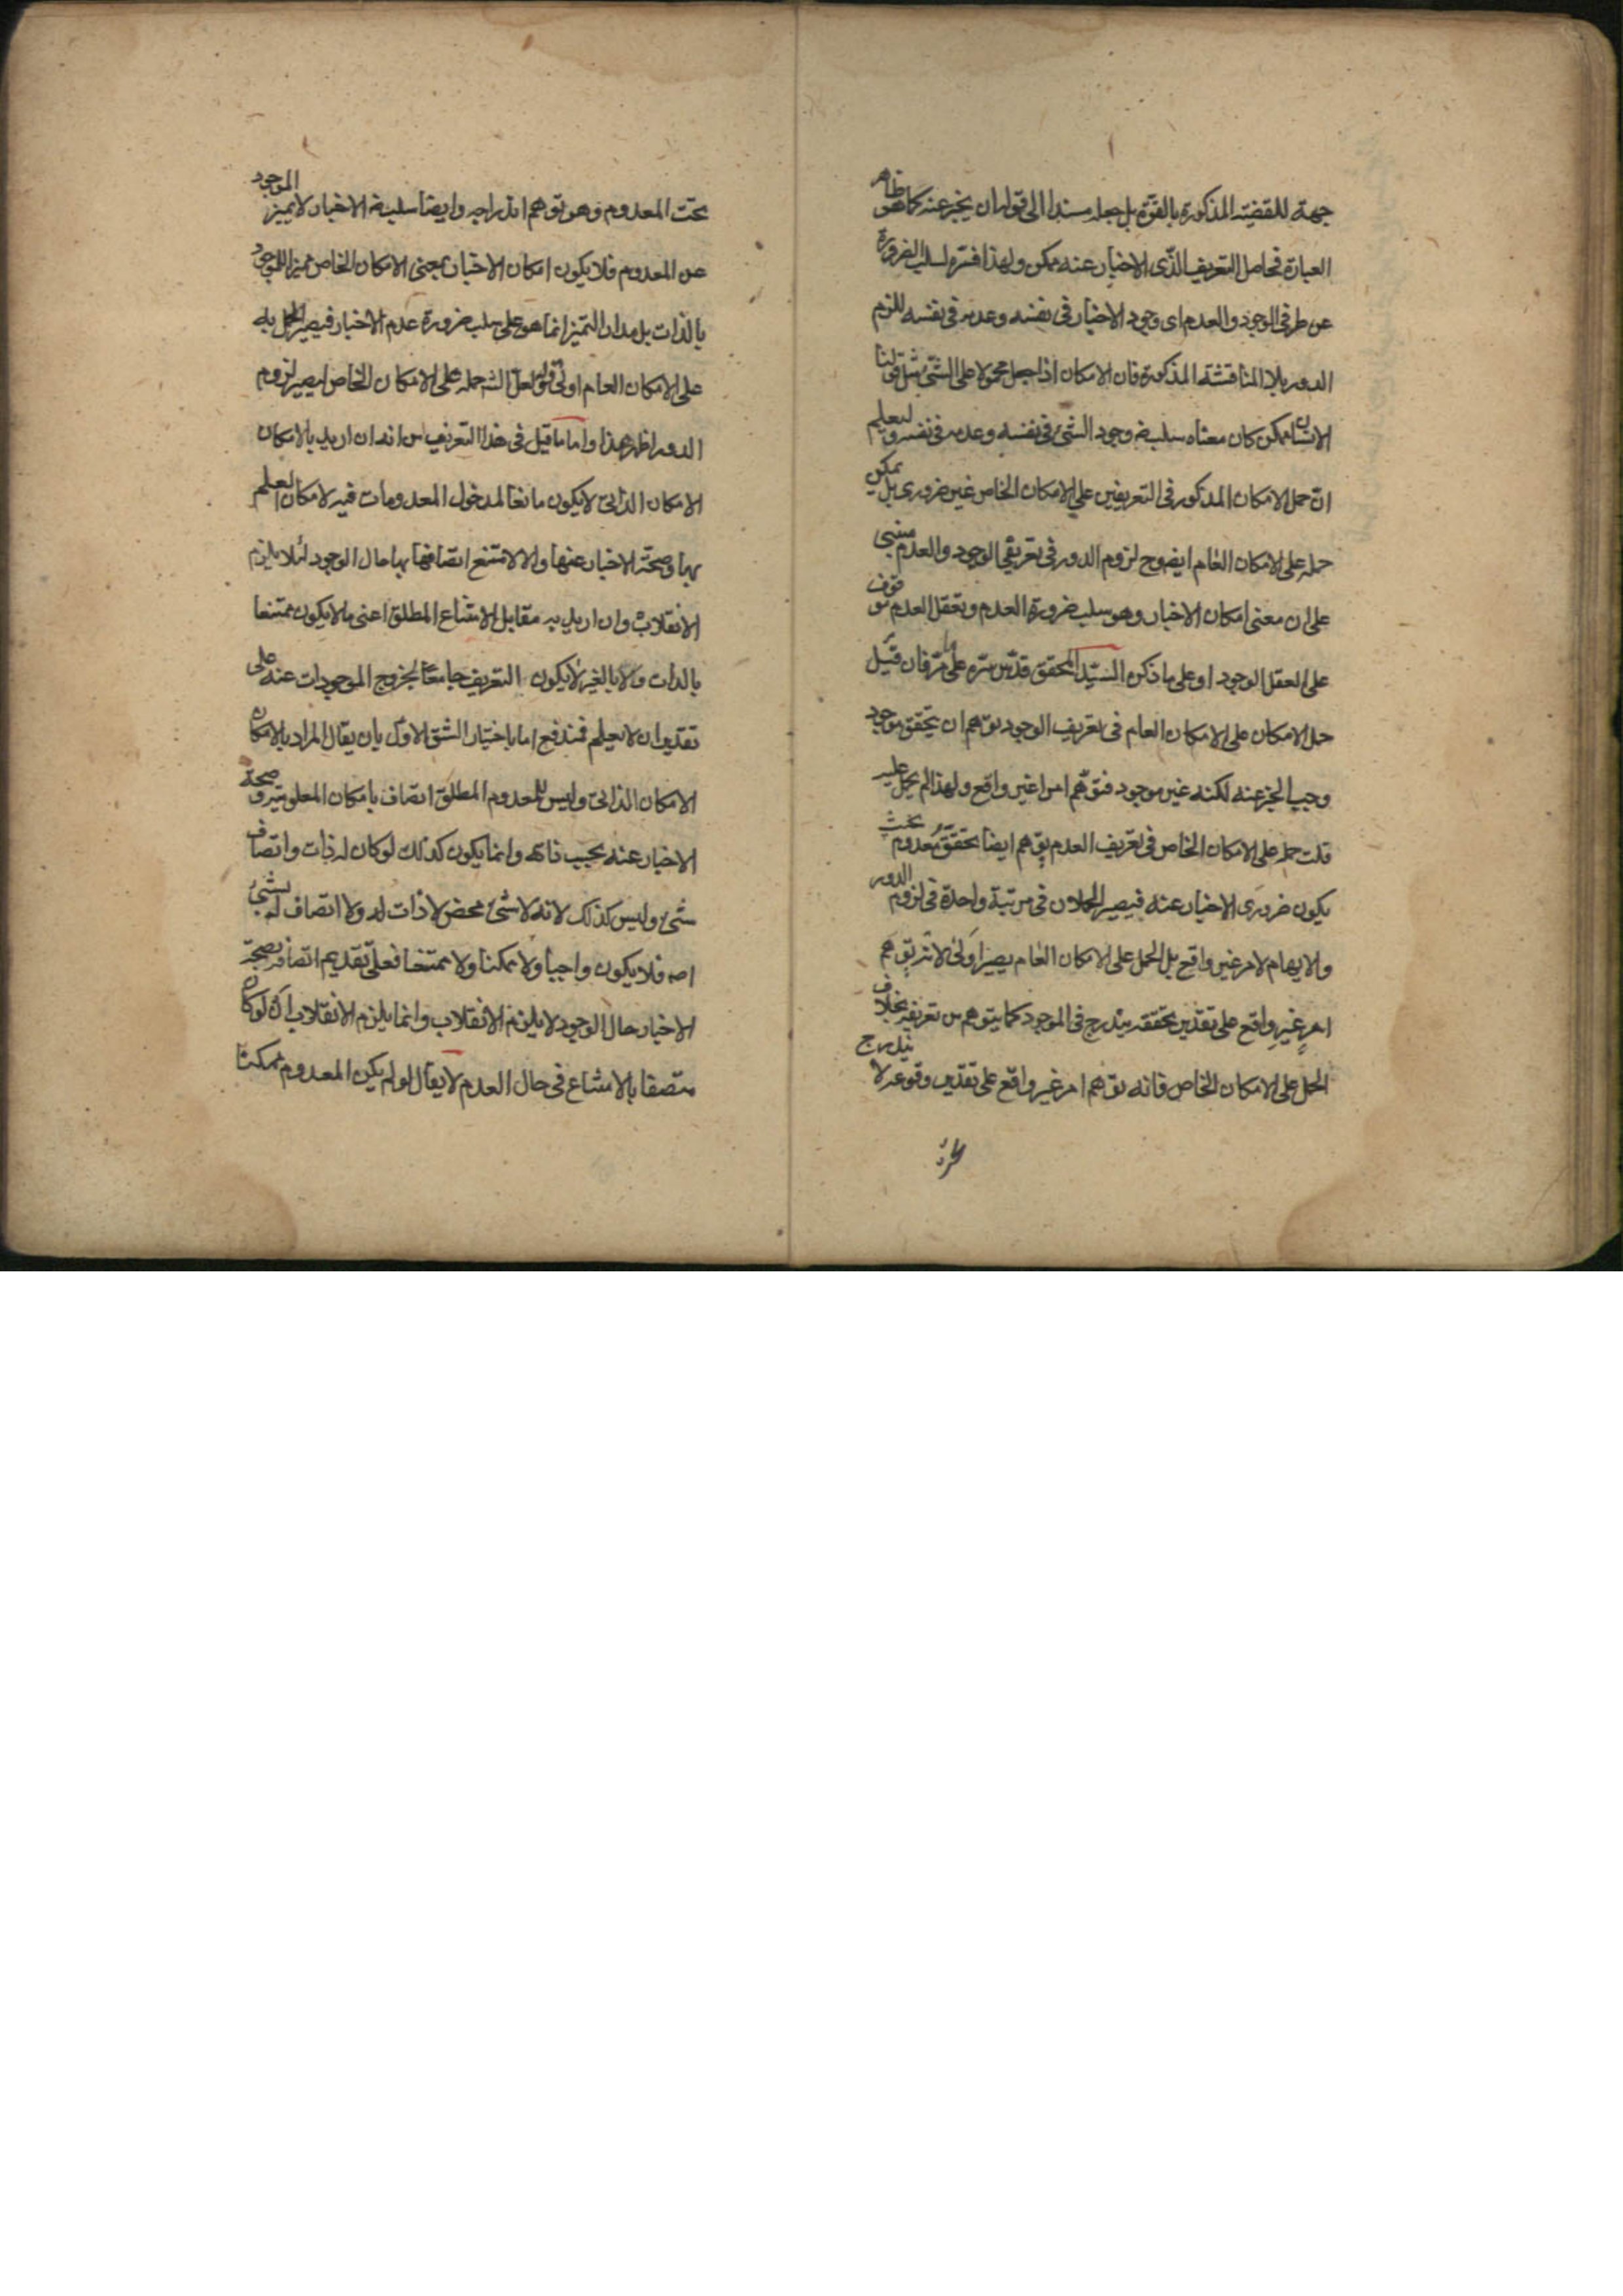 جهة للقضية المذكورة بالقوة بل جعله مسندا الى قوله ان يخبر عنه كما هو ظاهر
العبارة فحاصل التعريف الذى الاخبار عنه ممكن ولهذا فسره لسلب الضرورة
عن طرفى الوجود والعدم اى وجود الاخبار فى نفسه وعدمه فى نفسه للزم
الدور بلا المناقشة المذكورة فان الامكان اذا جعل محمولا على الشئ مثل قولنا
الانسان ممكن كان معناه سلب ضـ وجود الشئ فى نفسه وعدمه فى نفسه وليعلم
ان حمل الامكان المذكور فى التعريفين على الامكان الخاص غير ضرورى بل يمكن
حمله على الامكان العام ايضا وح لزوم الدور فى تعريفى الوجود والعدم مبنى
على ان معنى امكان الاخبار وهو سلب ضرورة العدم وتعقل العدم موقوف
على تعقل الوجود او على ما ذكره السيد المحقق قدس سره على ما مر فان قيل
حمل الامكان على الامكان العام فى تعريف الوجود يوهم ان يتحقق موجود
وجب الخبر عنه لكنه غير موجود فتوهم امرا غير واقع ولهذا لم يحمل عليه
قلت حمله على الامكان الخاص فى تعريف العدم يوهم ايضا تحقق معدوم بحيث
يكون ضرورى الاخبار عنه فيصير الحملان فى مرتبة واحدة فى لزوم الدور
والايهام لامر غير واقع بل الحمل على الامكان العام يصير اولى لانه يوهم
امر غير واقع على تقدير تحققه يندرج فى الموجود كما يتوهم من تعريفه بخلاف
الحمل على الامكان الخاص فانه يوهم امر غير واقع على تقدير وقوعه لا يندرج
تحت المعدوم وهو يوهم اندراجه وايضا سلب ضـ الاخبار لا يميز الموجود
عن المعدوم فلا يكون امكان الاخبار بمعنى الامكان الخاص مميزا للموجود
بالذات بل مدار التميز انما هو على سلب ضرورة عدم الاخبار فيصير الحمل
على الامكان العام اولى قوله لعل الشـ حمله على الامكان الخاص ليصير لزوم
الدور اظهر هذا واما ما قيل فى هذا التعريف من انه ان اريد بالامكان
الامكان الذاتى لا يكون مانعا لدخول المعدومات فيه لامكان العلم
بها وصحة الاخبار عنها والا لامتنع اتصافها بها حال الوجود لئلا يلزم
الانقلاب وان اريد به مقابل الامتناع المطلق اعنى ما لا يكون ممتنعا
بالذات ولا بالغير لا يكون التعريف جامعا لخروج الموجودات عنه على
تقدير ان لا يعلم فمندفع اما باختيار الشق الاول بان يقال المراد بالامكان
الامكان الذاتى وليس للمعدوم المطلق اتصاف بامكان المعلومية وصحة
الاخبار عنه بحسب ذاته وانما يكون كذلك لو كان له ذات واتصاف
شئ وليس كذلك لانه لا شئ محض لا ذات له ولا اتصاف له بشئ
اصـ فلا يكون واجبا ولا ممكنا ولا ممتنعا فعلى تقدير عدم اتصافه بصحة
الاخبار حال الوجود لا يلزم الانقلاب وانما يلزم الانقلاب ان لو كان
متصفا بالامتناع فى حال العدم لا يقال لو لم يكن المعدوم ممكنا